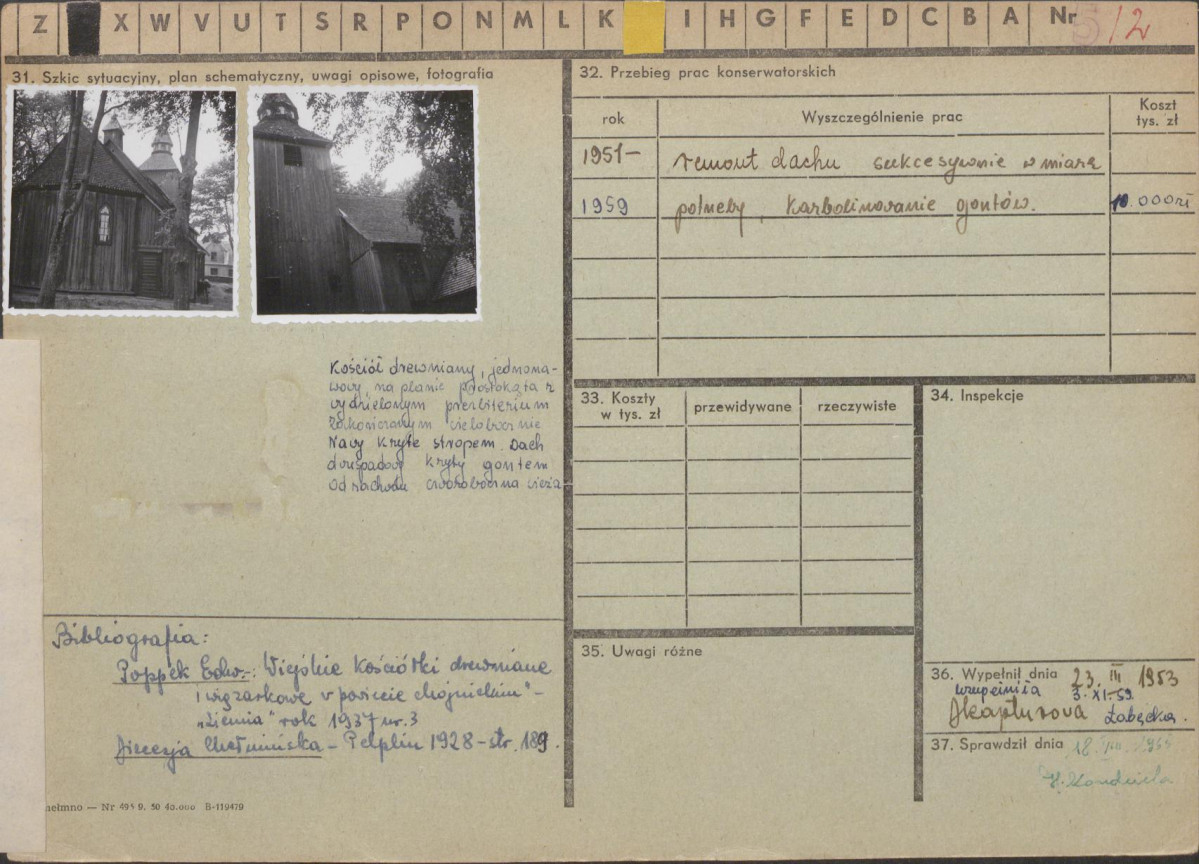 Z X W V U T S R P O N M L K I H G F E D C B A Nr 5/2
31. Szkic sytuacyjny, plan schematyczny, uwagi opisowe, fotografia
Kościół drewniany, jednona-
wowy na planie prostokąta z
wydzielonym prezbiterium
zakończonym wielobocznie
Nawy kryte stropem. Dach
dwuspadowy kryty gontem
Od zachodu czworoboczna wieża
Bibliografia:
Poppek Edw.: Wiejskie kościółki drewniane
i więzarkowe w powiecie chojnickim" -
"Ziemia" rok 1937 nr. 3
Diecezja Chełmińska - Pelplin 1928 - str. 189.
hełmno — Nr 495 9. 50 40.000 B-119479
32. Przebieg prac konserwatorskich
rok Wyszczególnienie prac Koszt tys. zł
1951- remont dachu sukcesywnie w miarę
1959 potrzeby, karbolinowanie gontów. 10.000zł
33. Koszty w tys. zł przewidywane rzeczywiste
34. Inspekcje
35. Uwagi różne
36. Wypełnił dnia 23. III 1953
uzupełniła 3.XI.59
Łabęcka.
37. Sprawdził dnia 18.